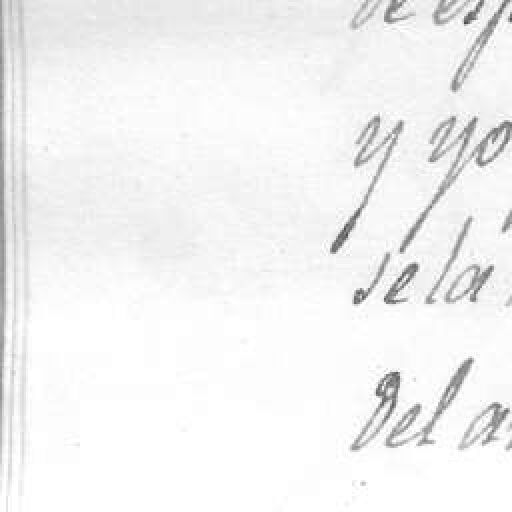 de esp
y yo
se la
Del a